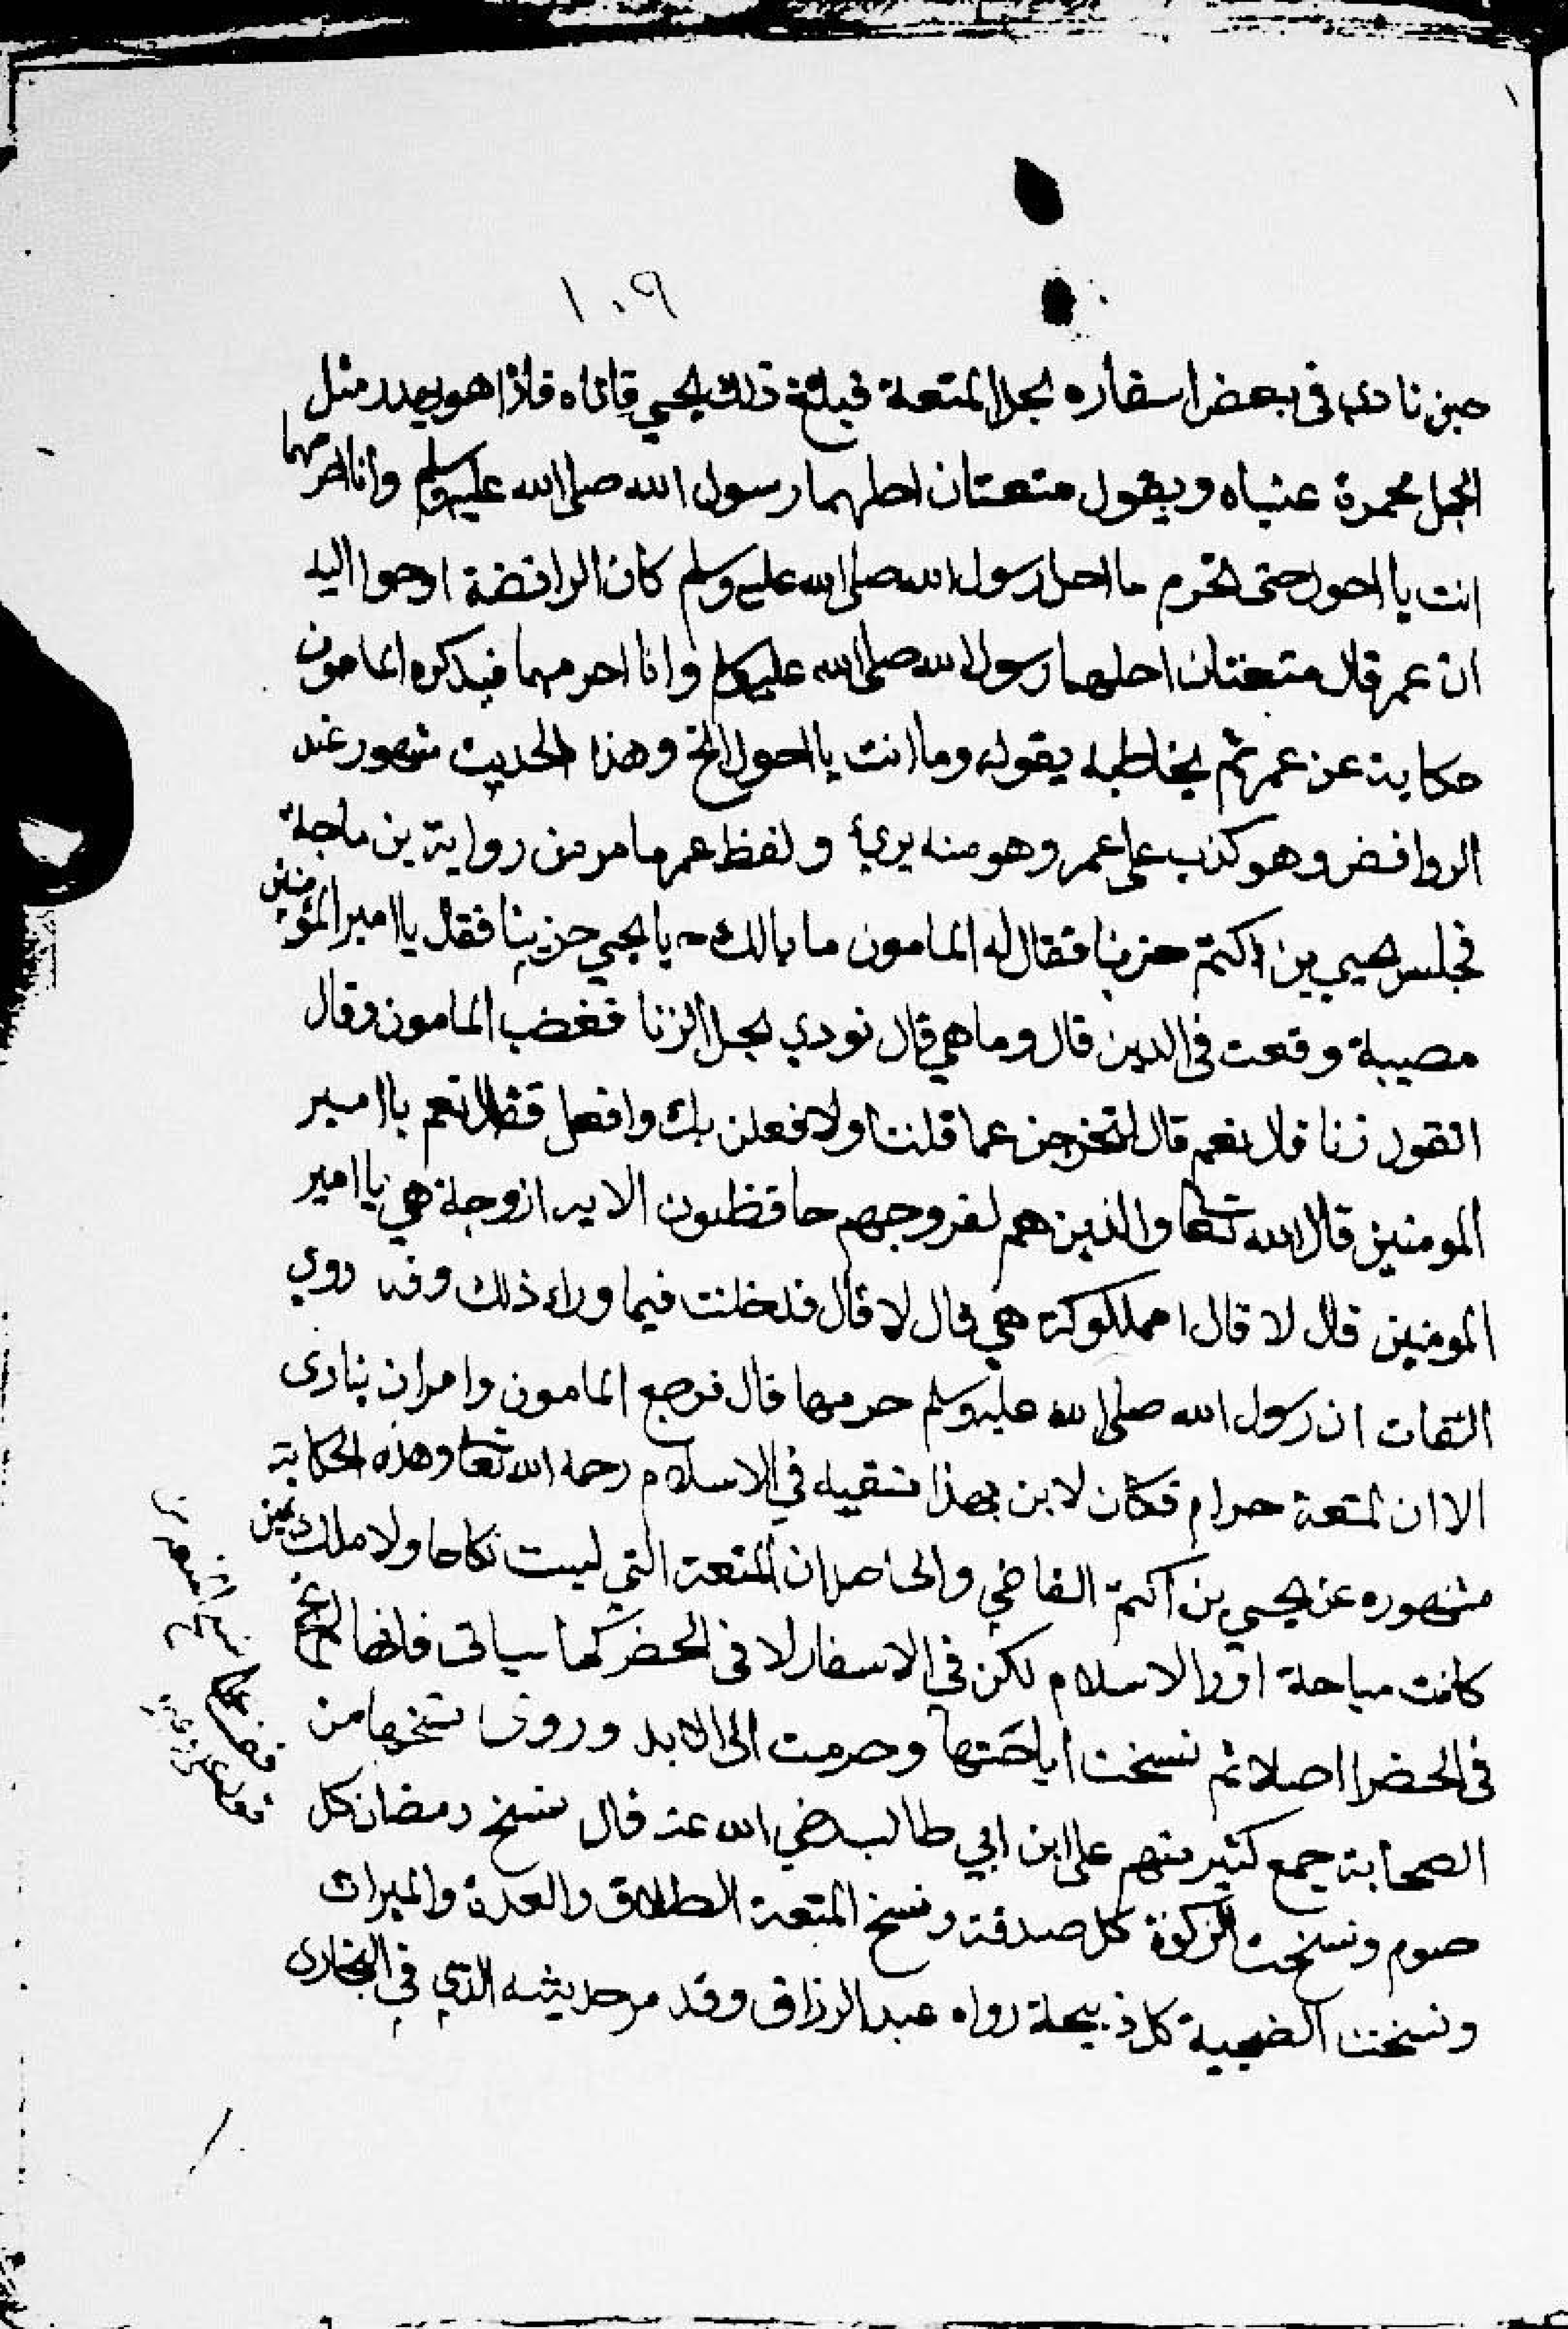 ١٠٩
حين نادى في بعض اسفاره بحل المتعة فبلغ ذلك يحيى فاتاه فاذا هو يهدر مثل
الجمل محمرة عيناه ويقول متعتان احلهما رسول الله صلى الله عليه وسلم وانا احرمهما
انت يا احول حتى تحرم ما احل رسول الله صلى الله عليه وسلم كان الرافضة اوحوا اليه
ان عمر قال متعتان احلهما رسول الله صلى الله عليه وسلم وانا احرمهما فيذكره المامون
حكاية عن عمر ثم يخاطبه يقوله وما انت يا احول الخ وهذا الحديث مشهور عند
الروافض وهو كذب على عمر وهو منه بريئ ولفظ عمر ما مر من رواية بن ماجة
فجلس يحيى بن اكثم حزينا فقال له المامون ما بالك يا يحيى حزينا فقال يا امير المؤمنين
مصيبة وقعت في الدين قال وما هي قال نودي بحل الزنا فغضب المامون وقال
اتقول زنا قال نعم قال لتخرجن عما قلت ولافعلن بك وافعل فقال نعم يا امير
المومنين قال الله تعا والذين هم لفروجهم حافظون الاية ازوجة هي يا امير
المومنين قال لا قال امملوكة هي قال لا قال فدخلت فيما وراء ذلك وقد روي
الثقات ان رسول الله صلى الله عليه وسلم حرمها قال فرجع المامون وامر ان ينادى
الا ان المتعة حرام فكان لابن بهذا منقبه في الاسلام رحمه الله تعا وهذه الحكاية
مشهوره عن يحيى بن اكثم القاضي والحاصل ان المتعة التي ليست نكاحا ولا ملك يمين
كانت مباحة اول الاسلام لكن في الاسفار لا في الحضر كما سياتي فانها لم تبح
في الحضر اصلا ثم نسخت اباحتها وحرمت الى الابد وروى نسخها من
الصحابة جمع كثير منهم على ابن ابي طالب رضي الله عنه قال نسخ رمضان كل
صوم ونسخت الزكوة كل صدقة ونسخ المتعة الطلاق والعدة والميراث
ونسخت الضحية كل ذبيحة رواه عبد الرزاق وقد مر حديثه الذي في البخارى